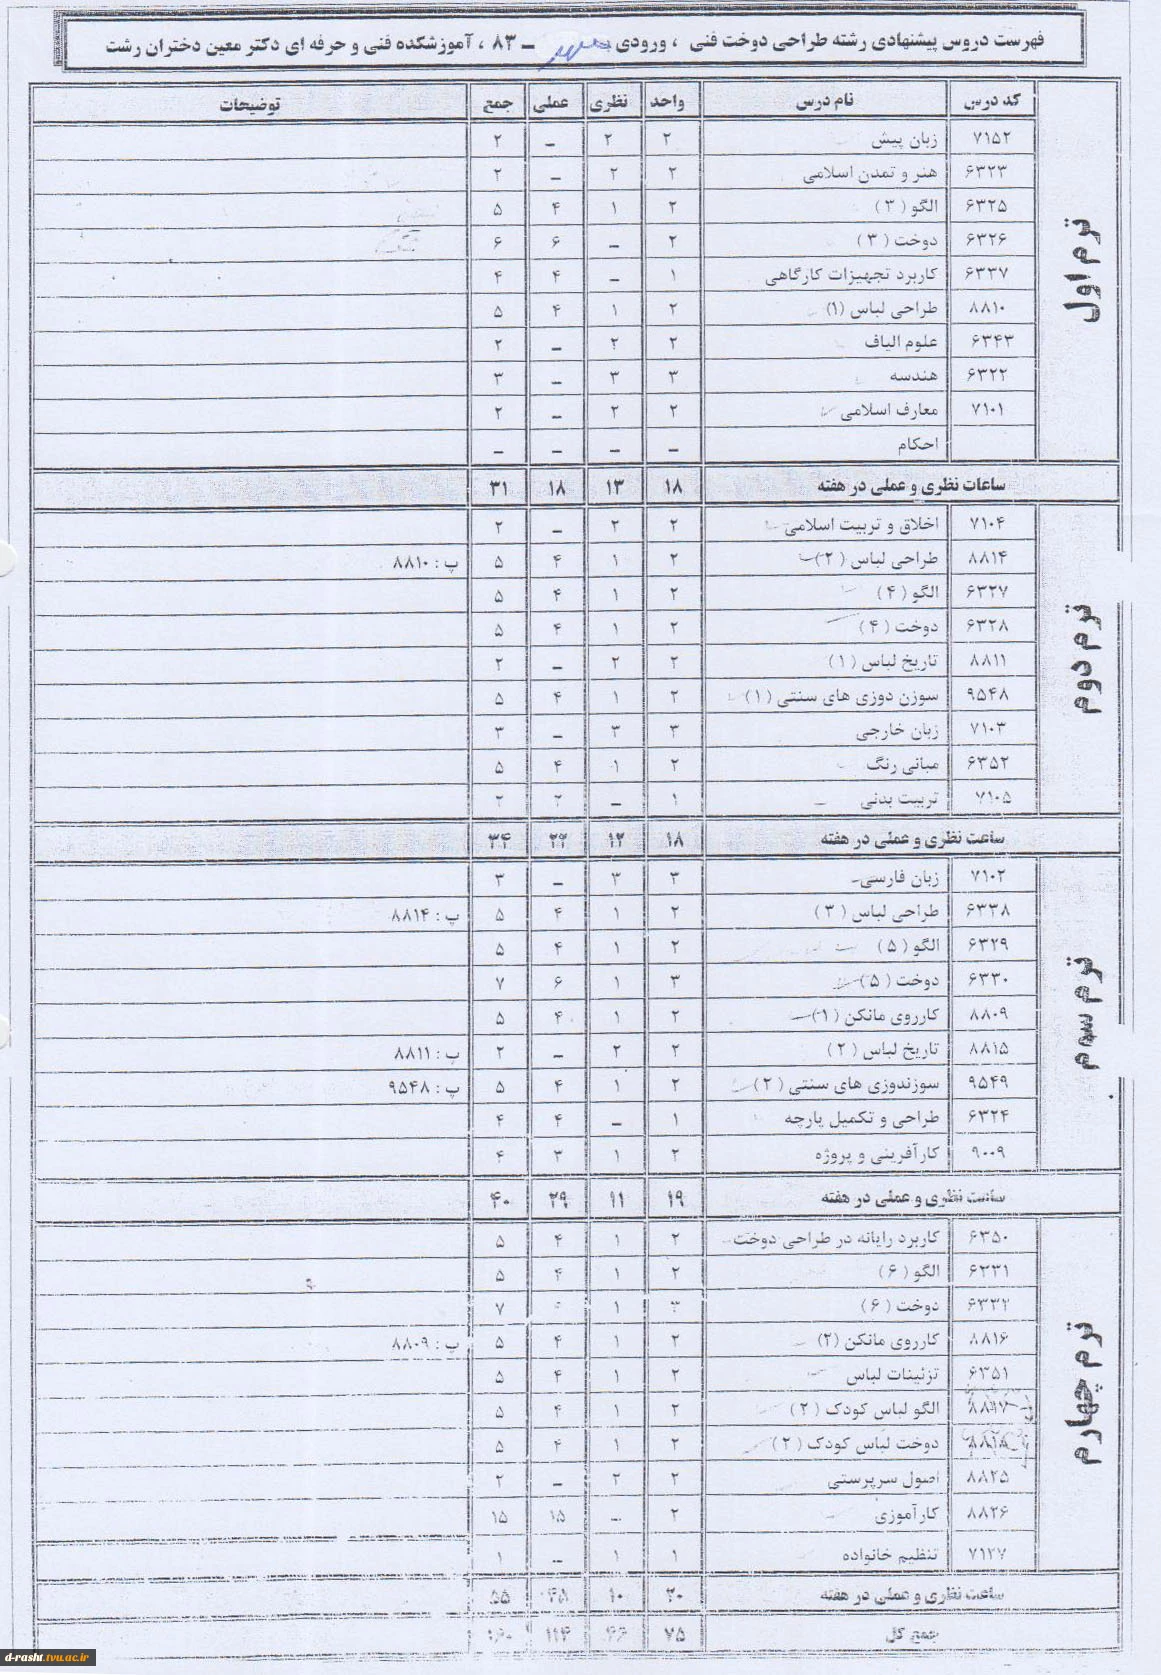 فهرست دروس پیشنهادی رشته طراحی دوخت فنی ، ورودی ـ ۸۳ ، آموزشکده فنی و حرفه ای دکتر معین دختران رشت
کد درس نام درس واحد نظری عملی جمع توضیحات
ترم اول
۷۱۵۲ زبان پیش ۲ ۲ ـ ۲
۶۳۲۳ هنر و تمدن اسلامی ۲ ۲ ـ ۲
۶۳۲۵ الگو ( ۳ ) ۲ ۱ ۴ ۵
۶۳۲۶ دوخت ( ۳ ) ۲ ـ ۶ ۶
۶۳۳۷ کاربرد تجهیزات کارگاهی ۱ ـ ۴ ۴
۸۸۱۰ طراحی لباس (۱) ۲ ۱ ۴ ۵
۶۳۴۳ علوم الیاف ۲ ۲ ـ ۲
۶۳۲۲ هندسه ۳ ۳ ـ ۳
۷۱۰۱ معارف اسلامی ۲ ۲ ـ ۲
احکام ـ ـ ـ ـ
ساعات نظری و عملی در هفته ۱۸ ۱۳ ۱۸ ۳۱
ترم دوم
۷۱۰۴ اخلاق و تربیت اسلامی ۲ ۲ ـ ۲
۸۸۱۴ طراحی لباس ( ۲ ) ۲ ۱ ۴ ۵ پ : ۸۸۱۰
۶۳۲۷ الگو ( ۴ ) ۲ ۱ ۴ ۵
۶۳۲۸ دوخت ( ۴ ) ۲ ۱ ۴ ۵
۸۸۱۱ تاریخ لباس ( ۱ ) ۲ ۲ ـ ۲
۹۵۴۸ سوزن دوزی های سنتی ( ۱ ) ۲ ۱ ۴ ۵
۷۱۰۳ زبان خارجی ۳ ۳ ـ ۳
۶۳۵۲ مبانی رنگ ۲ ۱ ۴ ۵
۷۱۰۵ تربیت بدنی ۱ ـ ۲ ۲
ساعت نظری و عملی در هفته ۱۸ ۱۲ ۲۲ ۳۴
ترم سوم
۷۱۰۲ زبان فارسی ۳ ۳ ـ ۳
۶۳۳۸ طراحی لباس ( ۳ ) ۲ ۱ ۴ ۵ پ : ۸۸۱۴
۶۳۲۹ الگو ( ۵ ) ۲ ۱ ۴ ۵
۶۳۳۰ دوخت ( ۵ ) ۳ ۱ ۶ ۷
۸۸۰۹ کارروی مانکن (۱) ۲ ۱ ۴ ۵
۸۸۱۵ تاریخ لباس ( ۲ ) ۲ ۲ ـ ۲ پ : ۸۸۱۱
۹۵۴۹ سوزندوزی های سنتی ( ۲ ) ۲ ۱ ۴ ۵ پ : ۹۵۴۸
۶۳۲۴ طراحی و تکمیل پارچه ۱ ـ ۴ ۴
۹۰۰۹ کارآفرینی و پروژه ۲ ۱ ۳ ۴
ساعت نظری و عملی در هفته ۱۹ ۱۱ ۲۹ ۴۰
ترم چهارم
۶۳۵۰ کاربرد رایانه در طراحی دوخت ۲ ۱ ۴ ۵
۶۳۳۱ الگو ( ۶ ) ۲ ۱ ۴ ۵
۶۳۳۲ دوخت ( ۶ ) ۳ ۱ ۷
۸۸۱۶ کارروی مانکن (۲) ۲ ۱ ۴ ۵ پ : ۸۸۰۹
۶۳۵۱ تزئینات لباس ۲ ۱ ۴ ۵
الگو لباس کودک ( ۲ ) ۲ ۱ ۴ ۵
دوخت لباس کودک ( ۲ ) ۲ ۱ ۴ ۵
۸۸۲۵ اصول سرپرستی ۲ ۲ ـ ۲
۸۸۲۶ کارآموزی ۲ ـ ۱۵ ۱۵
۷۱۲۷ تنظیم خانواده ۱ ۱ ـ ۱
ساعت نظری و عملی در هفته ۲۰ ۱۰ ۴۵ ۵۵
جمع کل ۷۵ ۴۶ ۱۱۴ ۱۶۰
d-rasht.tvu.ac.ir